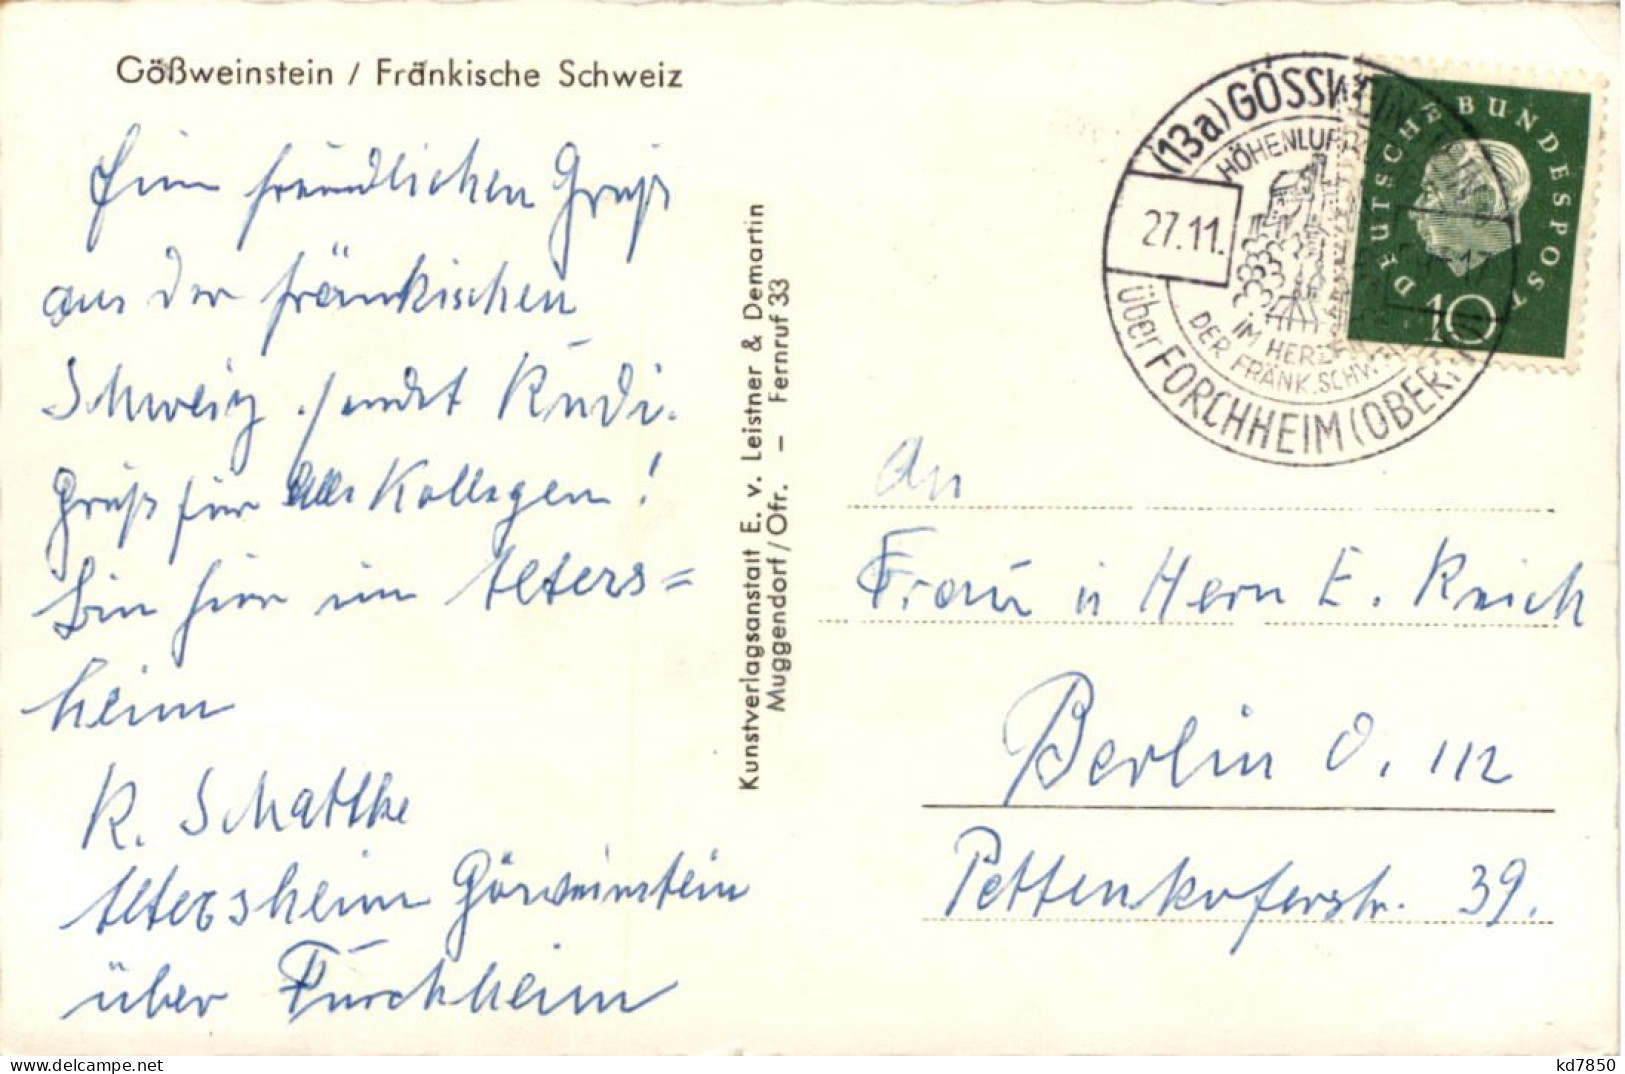 Gößweinstein / Fränkische Schweiz
Einen freundlichen Gruß
aus der fränkischen
Schweiz sendet Rudi.
Gruß für alle Kollegen!
Bin hier im Alters=
heim
R. Schattke
Altersheim Gösweinstein
über Furchheim
Kunstverlagsanstalt E. v. Leistner & Demartin
Muggendorf/Ofr. — Fernruf 33
(13a) GÖSSWEINSTEIN
HÖHENLUFT
27.11.
IM HERZEN
DER FRÄNK. SCHWEIZ
über FORCHHEIM (OBERFR.)
DEUTSCHE BUNDESPOST
10
An
Frau u Herrn E. Reich
Berlin O. 112
Pettenkoferstr. 39.
kd7850